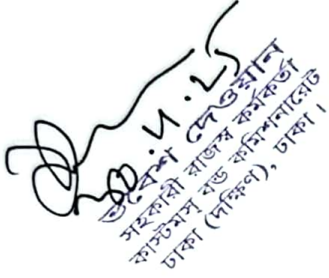 দেওয়ান
সহকারী রাজস্ব কর্মকর্তা
কাস্টমস বন্ড কমিশনারেট
ঢাকা (দক্ষিণ), ঢাকা।